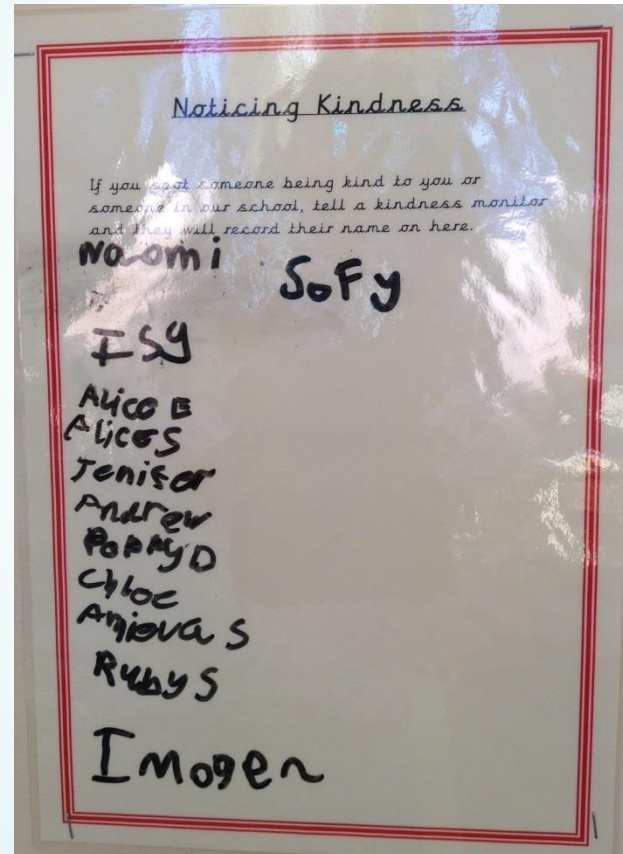 Noticing Kindness
If you spot someone being kind to you or
someone in our school, tell a kindness monitor
and they will record their name on here.
Naomi
SoFy
ISY
Alice B
Alice S
Jenifer
Andrew
Poppy D
Chloe
S
Ruby S
Imogen